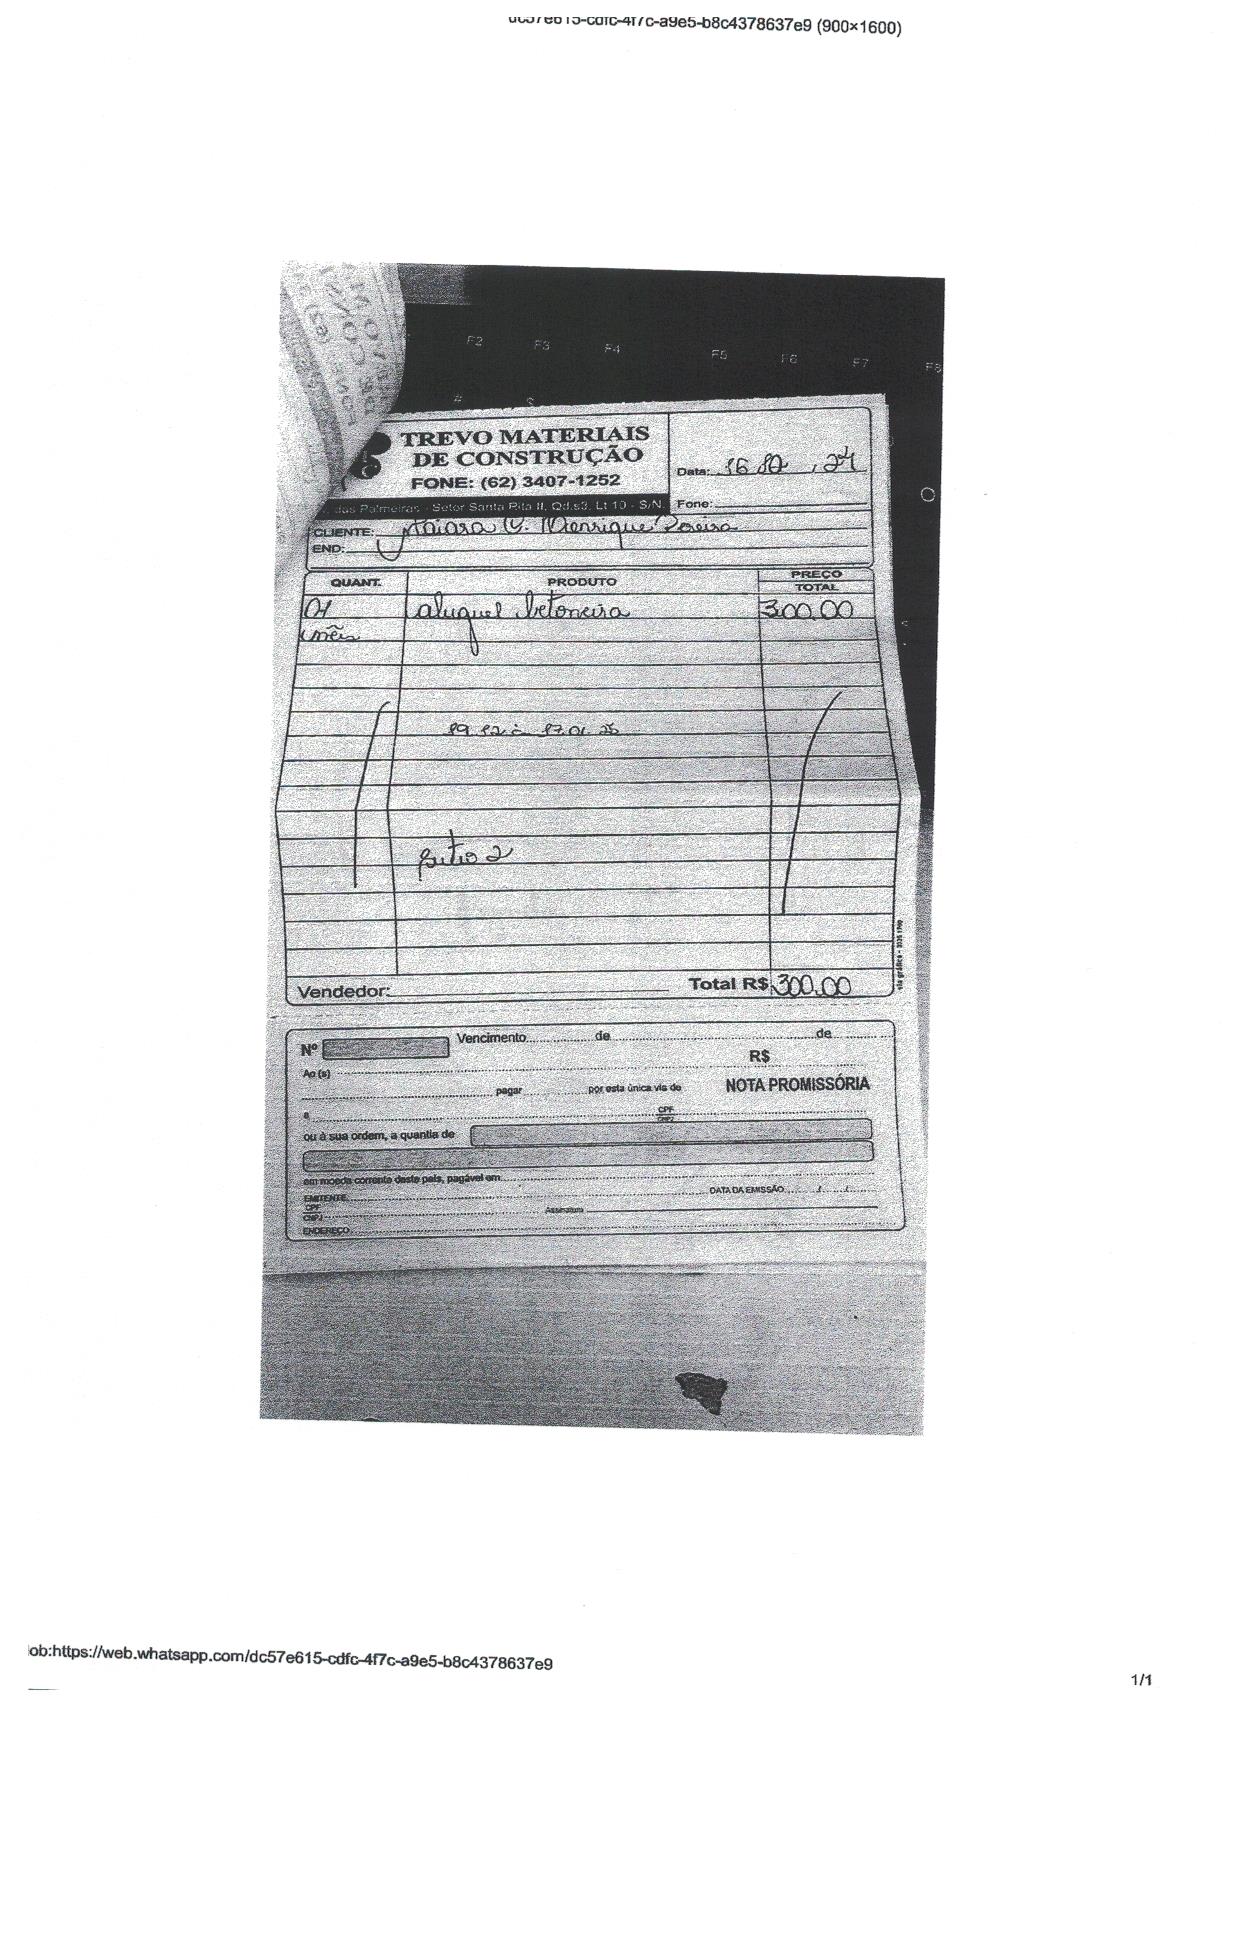 (900×1600)
F2 F3 F4 F5 F6 F7 F8
# $
TREVO MATERIAIS
DE CONSTRUÇÃO
FONE: (62) 3407-1252
das Palmeiras - Setor Santa Rita II, Qd.s3, Lt 10 - S/N
Data: 24
Fone:
CLIENTE: Henrique Pereira
END:
QUANT. PRODUTO PREÇO
TOTAL
01 aluguel betoneira 300.00
mês
19.12 à 17.01.25
2
Vendedor: Total R$ 300.00
via gráfica -
Nº Vencimento de de
R$
Ao(s)
pagar por esta única via de NOTA PROMISSÓRIA
a CPF
CNPJ
ou à sua ordem, a quantia de
em moeda corrente deste país, pagável em
EMITENTE DATA DA EMISSÃO / /
CPF
CNPJ Assinatura
ENDEREÇO
ob:https://web.whatsapp.com/dc57e615-cdfc-4f7c-a9e5-b8c4378637e9
1/1